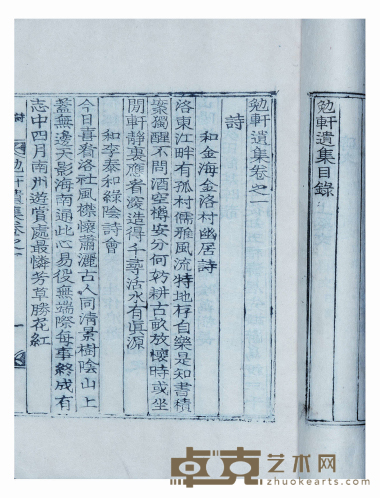 勉軒遺集目錄
勉軒遺集卷之一
詩
和金海金洛村幽居詩
洛東江畔有孤村儒雅風流特地存自樂是知書積
案獨醒不問酒空樽安分何妨耕古畝放懷時或坐
閒軒靜裏應看深造得千尋活水有眞源
和李泰和綠陰詩會
今日喜看洛社風襟懷蕭灑古人同淸景樹陰山上
蓋無邊天影海南通此心易役無端際每事終成有
志中四月南州遊賞處最憐芳草勝花紅
勉軒遺集卷之一
卓克艺术网
www.zhuokearts.com